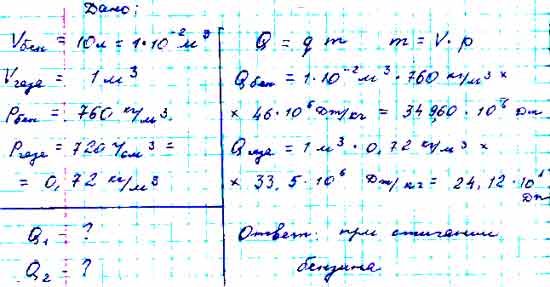 Дано:
Vбен = 10л = 1·10⁻² м³
Vгаза = 1 м³
ρбен = 760 кг/м³
ρгаза = 720 г/см³ =
= 0,72 кг/м³
Q₁ - ?
Q₂ - ?
Q = q m m = V·ρ
Qбен = 1·10⁻² м³ · 760 кг/м³ ×
× 46·10⁶ Дж/кг = 34,960·10⁷ Дж
Qгаза = 1 м³ · 0,72 кг/м³ ×
× 33,5·10⁶ Дж/кг = 24,12·10⁶ Дж
Ответ: при сжигании
бензина